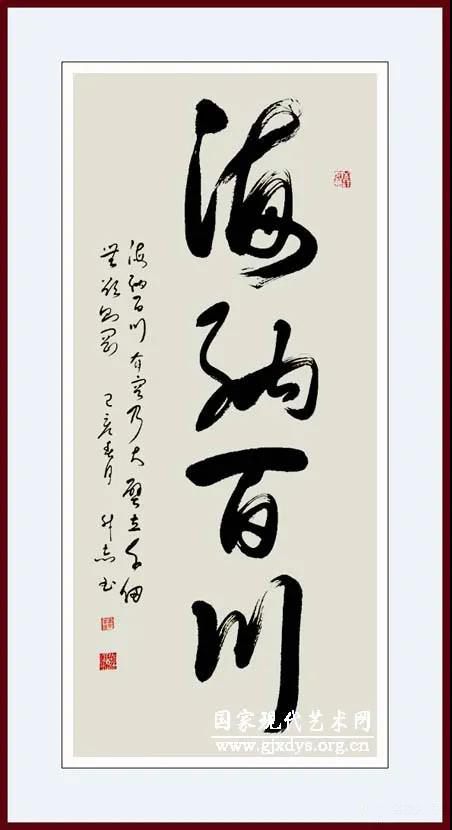 海纳百川
海纳百川 有容乃大 壁立千仞
无欲则刚 己亥春月 升志书
国家现代艺术网
www.gjxdys.org.cn